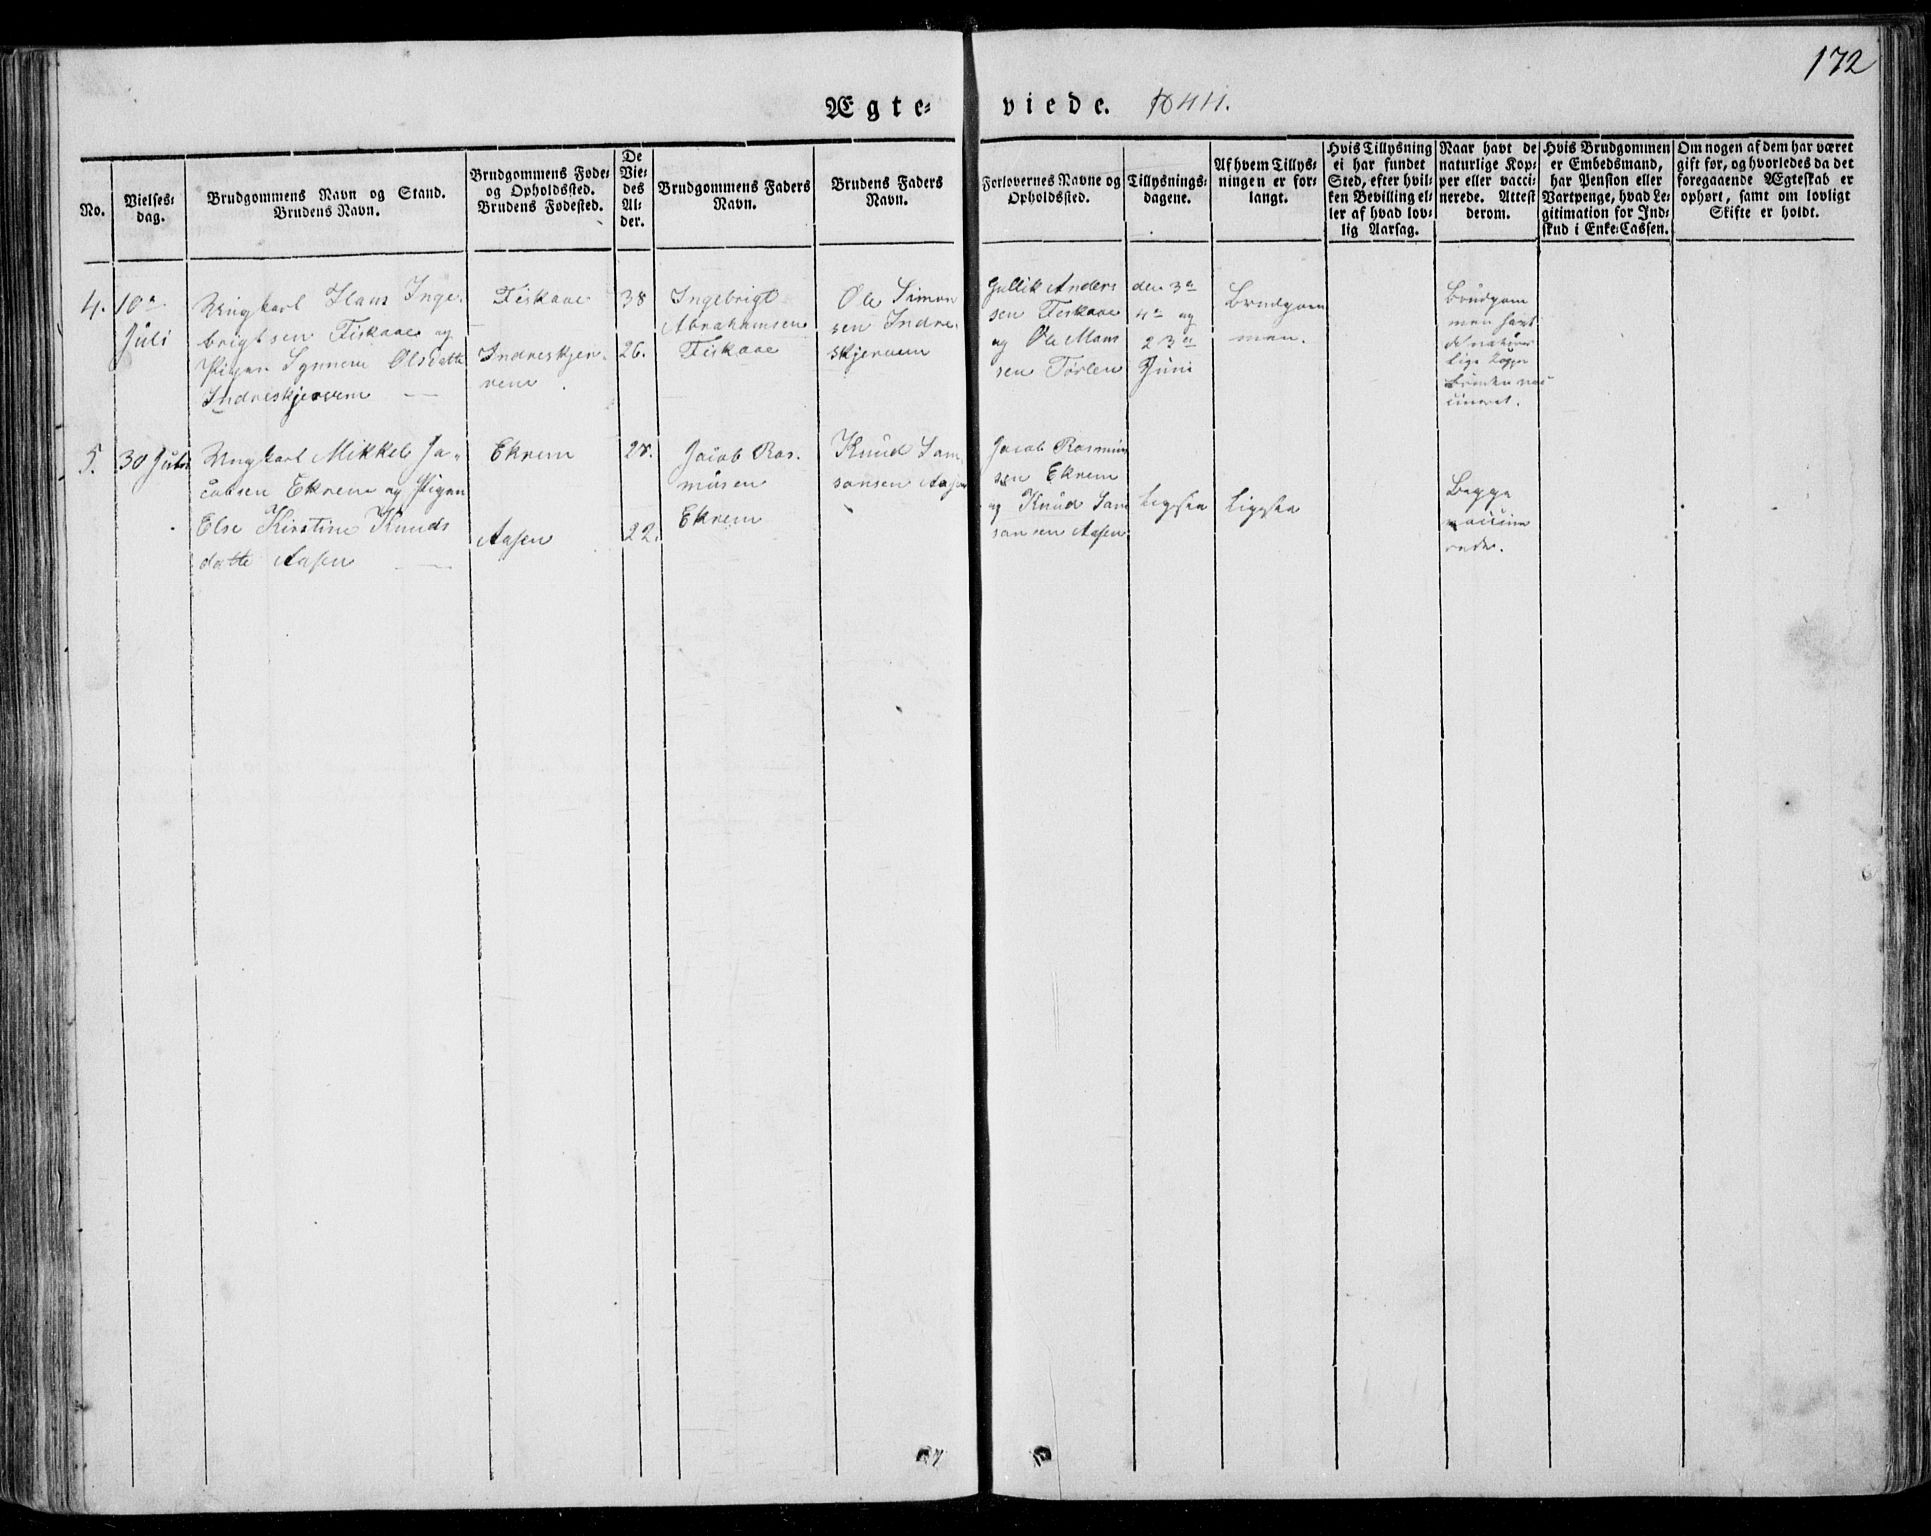 172
Ægte= viede. 1841.
No.
Vielses=
dag.
Brudgommens Navn og Stand.
Brudens Navn.
Brudgommens Føde=
og Opholdssted.
Brudens Fødested.
De
Vie=
des
Al=
der.
Brudgommens Faders
Navn.
Brudens Faders
Navn.
Forlovernes Navne og
Opholdssted.
Tillysnings=
dagene.
Af hvem Tillys=
ningen er for=
langt.
Hvis Tillysning
ei har fundet
Sted, efter hvil=
ken Bevilling el=
ler af hvad lov=
lig Aarsag.
Naar havt de
naturlige Kop=
per eller vacci=
nerede. Attest
derom.
Hvis Brudgommen
er Embedsmand,
har Pension eller
Vartpenge, hvad Le=
gitimation for Ind=
skud i Enke=Cassen.
Om nogen af dem har været
gift før, og hvorledes da det
foregaaende Ægteskab er
ophørt, samt om lovligt
Skifte er holdt.
4.
10de
Juli
Ungkarl Hans Inge-
brigtsen Fiskaae og
Pigen Synneve Olsdatte
Indreskjerven
Fiskaae
Indreskjer-
ven
38
26.
Ingebrigt
Abrahamsen
Fiskaae
Ole Simon
sen Indre-
skjerven
Gullik Anders
sen Fiskaae
og Ole Mons
sen
den 3de
4de og
23de
Juni
Brudgom
men.
Brudgom
men havt
de natur
lige Kopper
Bruden vac
cineret.
5.
30 Juli
Ungkarl Mikkel Ja-
cobsen Ekrem og Pigen
Else Kirstine Knuds
datte Aasen
Ekrem
Aasen
28.
22.
Jacob Ras-
musen
Ekrem
Knud Sam
sonsen Aasen
Jacob Rasmus
sen Ekrem
og Knud Sam
sonsen Aasen
Ligesaa
Ligesaa
Begge
vaccine
rede.